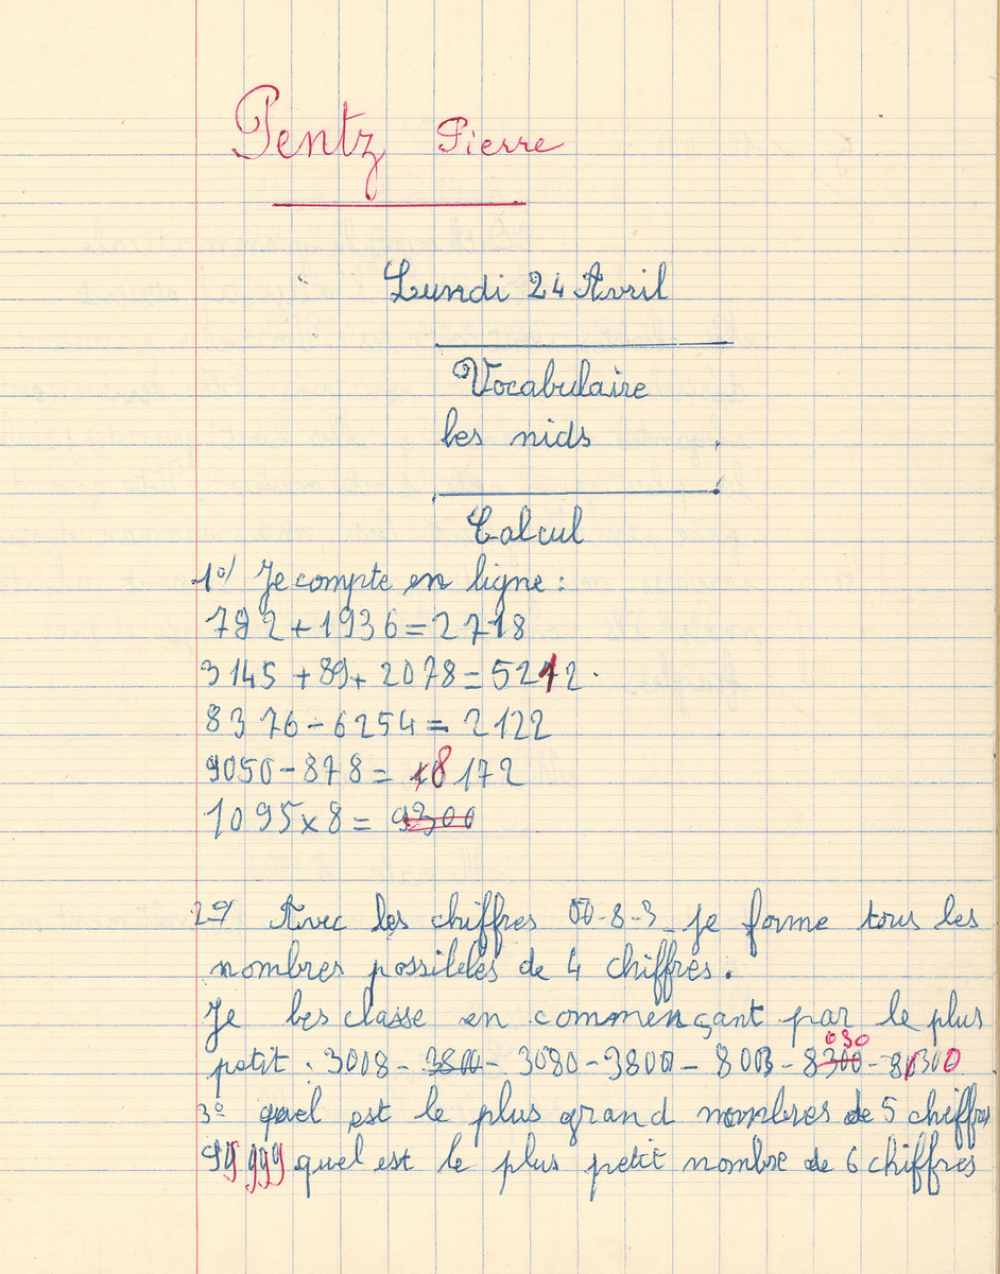 Pentz Pierre
Lundi 24 Avril
Vocabulaire
les nids
Calcul
1°/ Je compte en ligne :
782 + 1936 = 2718
3145 + 89 + 2078 = 5212.
8376 - 6254 = 2122
9050 - 878 = 8172
1095 x 8 = 9300
2°/ Avec les chiffres 00-8-3 je forme tous les
nombres possibles de 4 chiffres.
Je les classe en commençant par le plus
030
petit : 3008 - 3800 - 3080 - 3800 - 8003 - 8300 - 8300
3° quel est le plus grand nombres de 5 chiffres
99 999 quel est le plus petit nombre de 6 chiffres